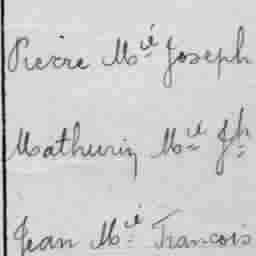 Pierre M.ie Joseph
Mathurin M.ie Jh
Jean M.ie Francois